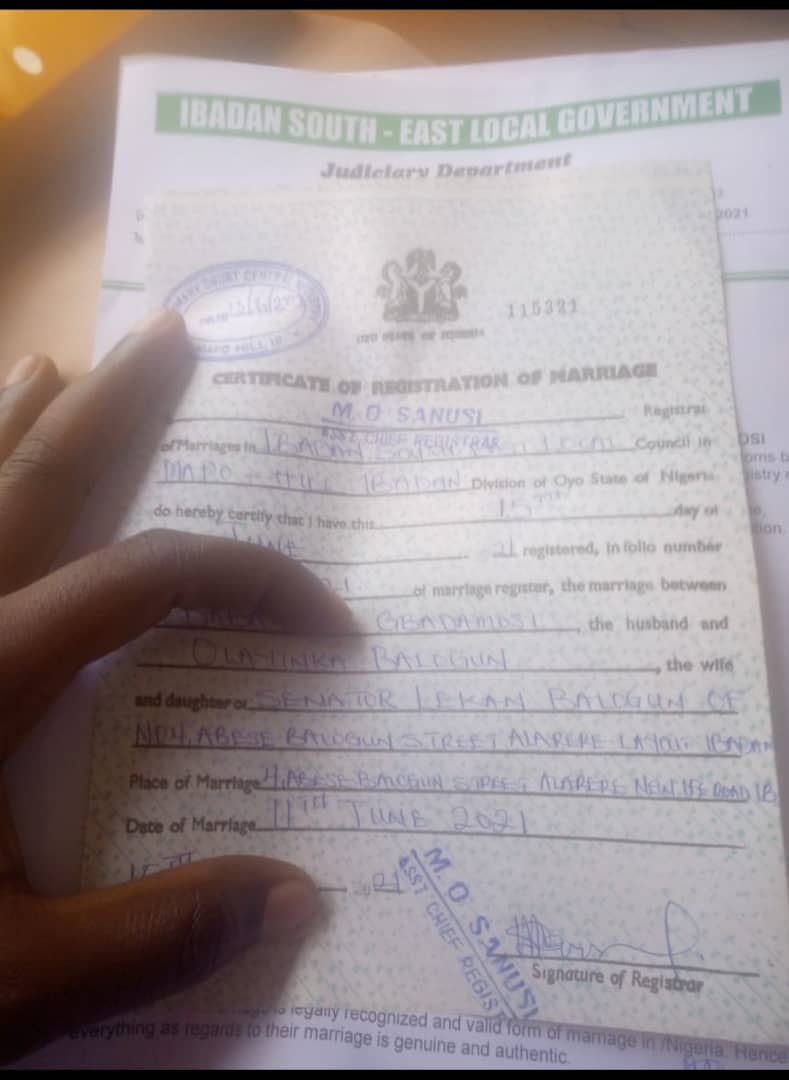 IBADAN SOUTH - EAST LOCAL GOVERNMENT
Judiciary Department
2021
115321
OYO STATE OF NIGERIA
CERTIFICATE OF REGISTRATION OF MARRIAGE
M. O SANUSI Registrar
ASST CHIEF REGISTRAR
of Marriages in IBADAN LOCAL Council in
MAPO HILL IBADAN Division of Oyo State of Nigeria
do hereby certify that I have this 15TH day of
JUNE 21 registered, in folio number
of marriage register, the marriage between
GBADAMOSI, the husband and
OLAYINKA BALOGUN, the wife
and daughter of SENATOR LEKAN BALOGUN OF
NO4, ABESE BALOGUN STREET ALARERE IBADAN
Place of Marriage 4, ABESE BALOGUN STREET ALARERE NEW IFE ROAD IB
Date of Marriage 11TH JUNE 2021
15TH 2021
M. O SANUSI
ASST CHIEF REGIST
Signature of Registrar
is legally recognized and valid form of marriage in /Nigeria. Hence
everything as regards to their marriage is genuine and authentic.